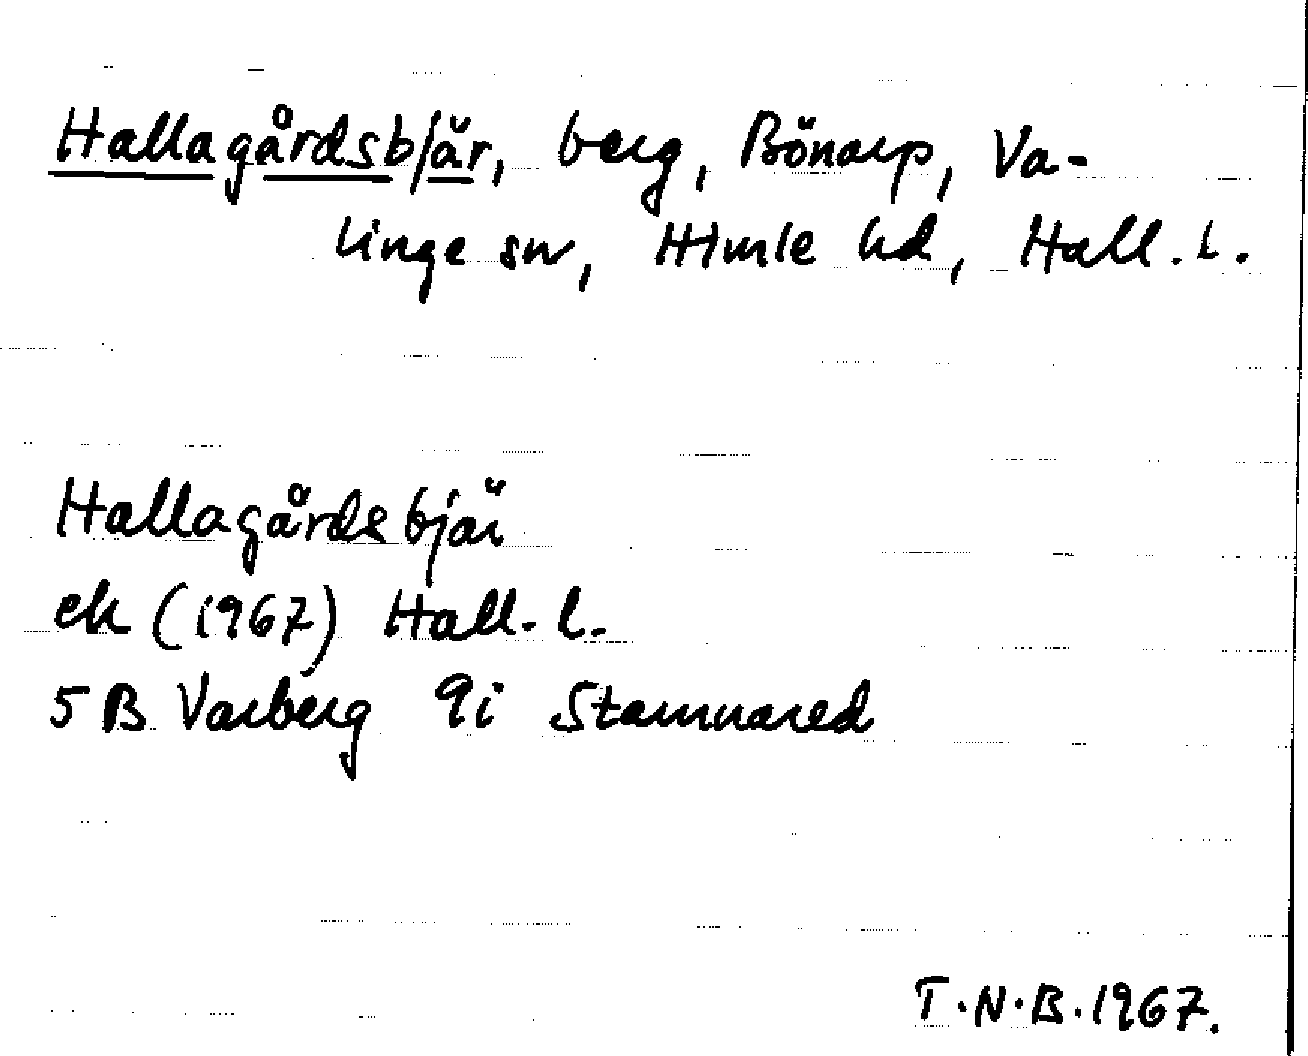 Hallagårdsbjär, berg, Bönarp, Va-
linge sn, Himle hd, Hall. l.
Hallagårdsbjär
ek (1967) Hall. l.
5 B Varberg 9i Stamnared
T.N.B. 1967.